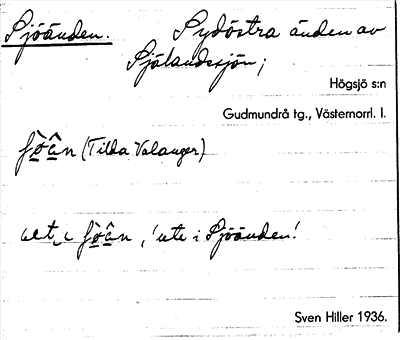 Sjöänden. Sydöstra änden av
Sjölandssjön;
Högsjö s:n
Gudmundrå tg., Västernorrl. l.
(Tilda Valanger)
'ute i Sjöänden'.
Sven Hiller 1936.